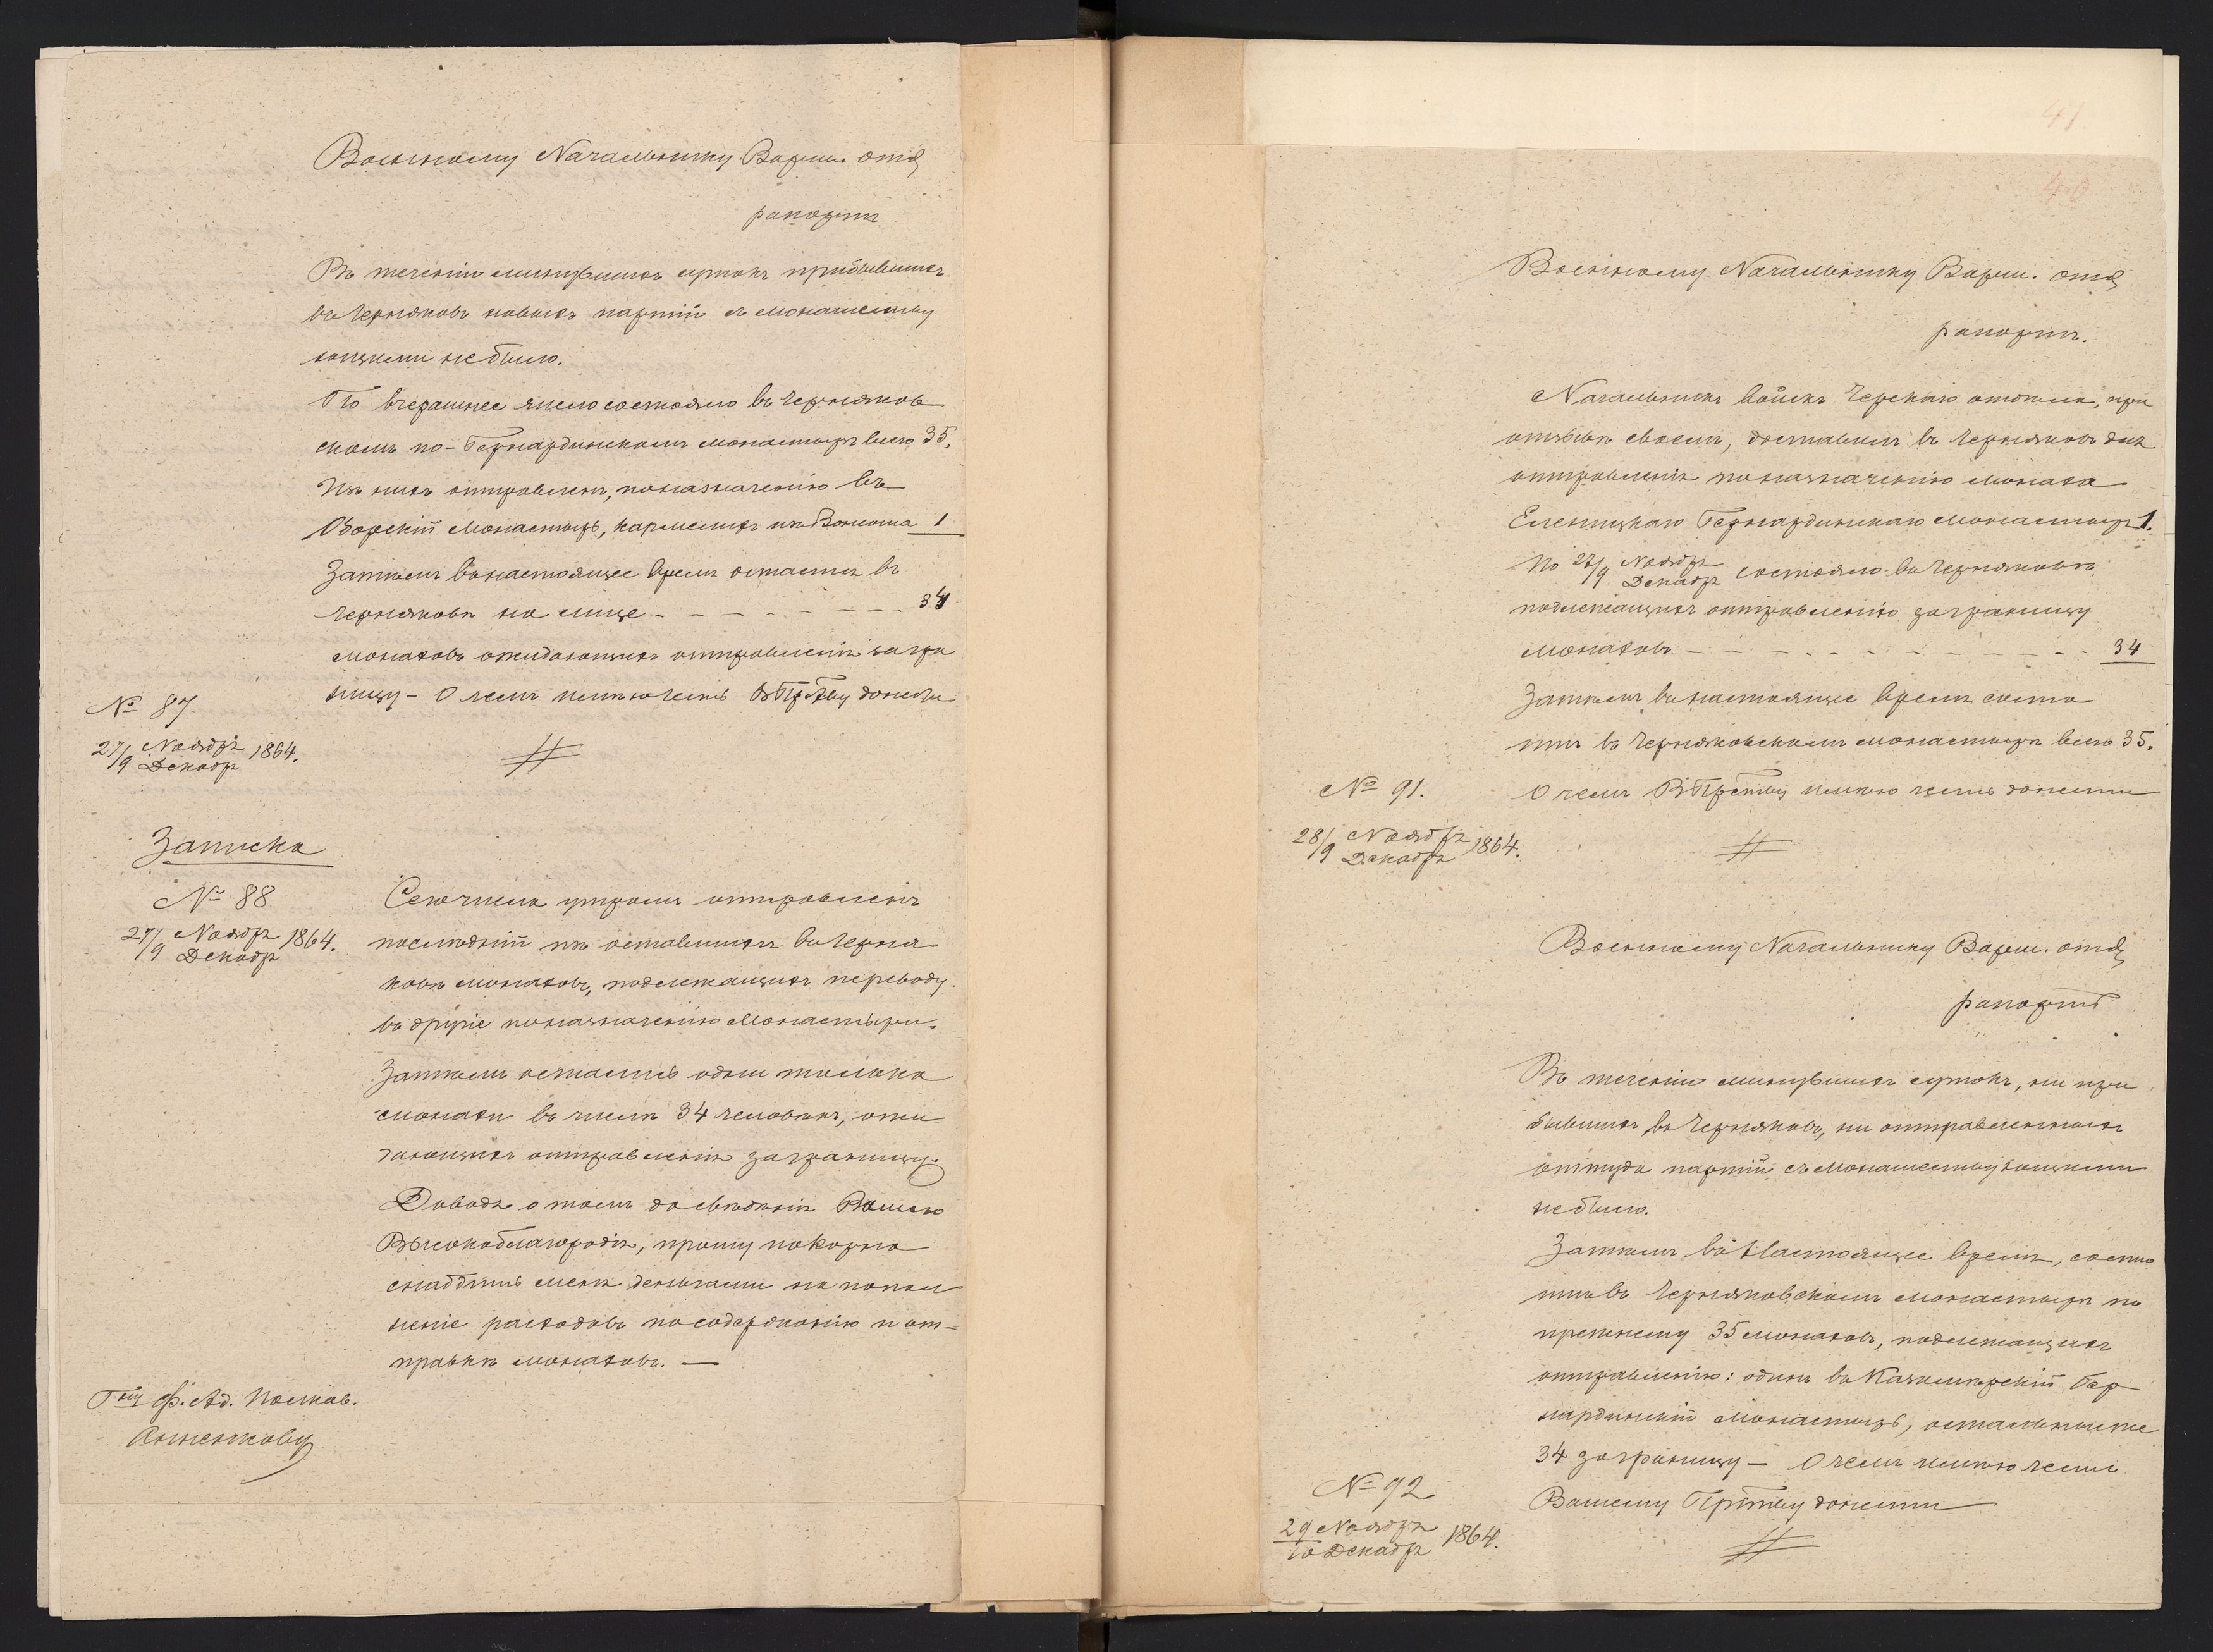 Военному Начальнику Варш. отд
рапортъ
Въ теченіи минувшихъ сутокъ прибывшихъ
въ Черняковъ новыхъ партій съ монашеству
ющими небыло.
По вчерашнее число состояло въ Черняков
скомъ по-Бернардинскомъ монастырѣ всего 35.
Изъ нихъ отправленъ, по назначенію въ
Оборскій Монастырь, кармелитъ изъ 1
Затѣмъ въ настоящее время остается въ
Черняковѣ на лице - - - - - - - - 34
монаховъ ожидающихъ отправленія загра
ницу - О чемъ имѣю честь В Прству донести
№ 87
27/9 Ноября Декабря 1864.
Записка
№ 88
27/9 Ноября Декабря 1864.
Сего числа утромъ отправленъ
последній изъ оставшихся въ Черня
ковѣ монаховъ, подлежащихъ переводу
въ другіе по назначенію Монастыри.
Затѣмъ остались одни только
монахи въ числѣ 34 человѣкъ, ожи
дающихъ отправленія заграницу.
Доводя о томъ до свѣдѣнія Вашего
Высокоблагородія, прошу покорно
снабдить меня деньгами на попол
неніе расходовъ по содержанію и от=
правкѣ монаховъ. —
Гну Ф. Ад. Полков.
Анненкову
41
40
Военному Начальнику Варш. отд
рапортъ.
Начальникъ войскъ Черскаго отдѣла, при
отзывѣ своемъ, доставилъ въ Черняковъ для
отправленія по назначенію монаха
Бернардинскаго монастыря 1.
По 27/9 Ноября Декабря состояло въ Черняковѣ
подлежащихъ отправленію заграницу
монаховъ - - - - - - - - - - - 34
Затѣмъ въ настоящее время состо
итъ въ Черняковскомъ монастырѣ всего 35.
О чемъ В Прству имѣю честь донести
№ 91.
28/9 Ноября Декабря 1864.
Военному Начальнику Варш. отд
рапортъ
Въ теченіи минувшихъ сутокъ, ни при
бывшихъ въ Черняковъ, ни отправленныхъ
оттуда партій съ монашествующими
небыло.
Затѣмъ въ Настоящее время, состо
итъ въ Черняковскомъ монастырѣ по
прежнему 35 монаховъ, подлежащихъ
отправленію: одинъ въ Казимѣрскій Бер
нардинскій монастырь, остальные же
34 заграницу — О чемъ имѣю честь
Вашему Прству донести
№ 92
29 Ноября 10 Декабря 1864.